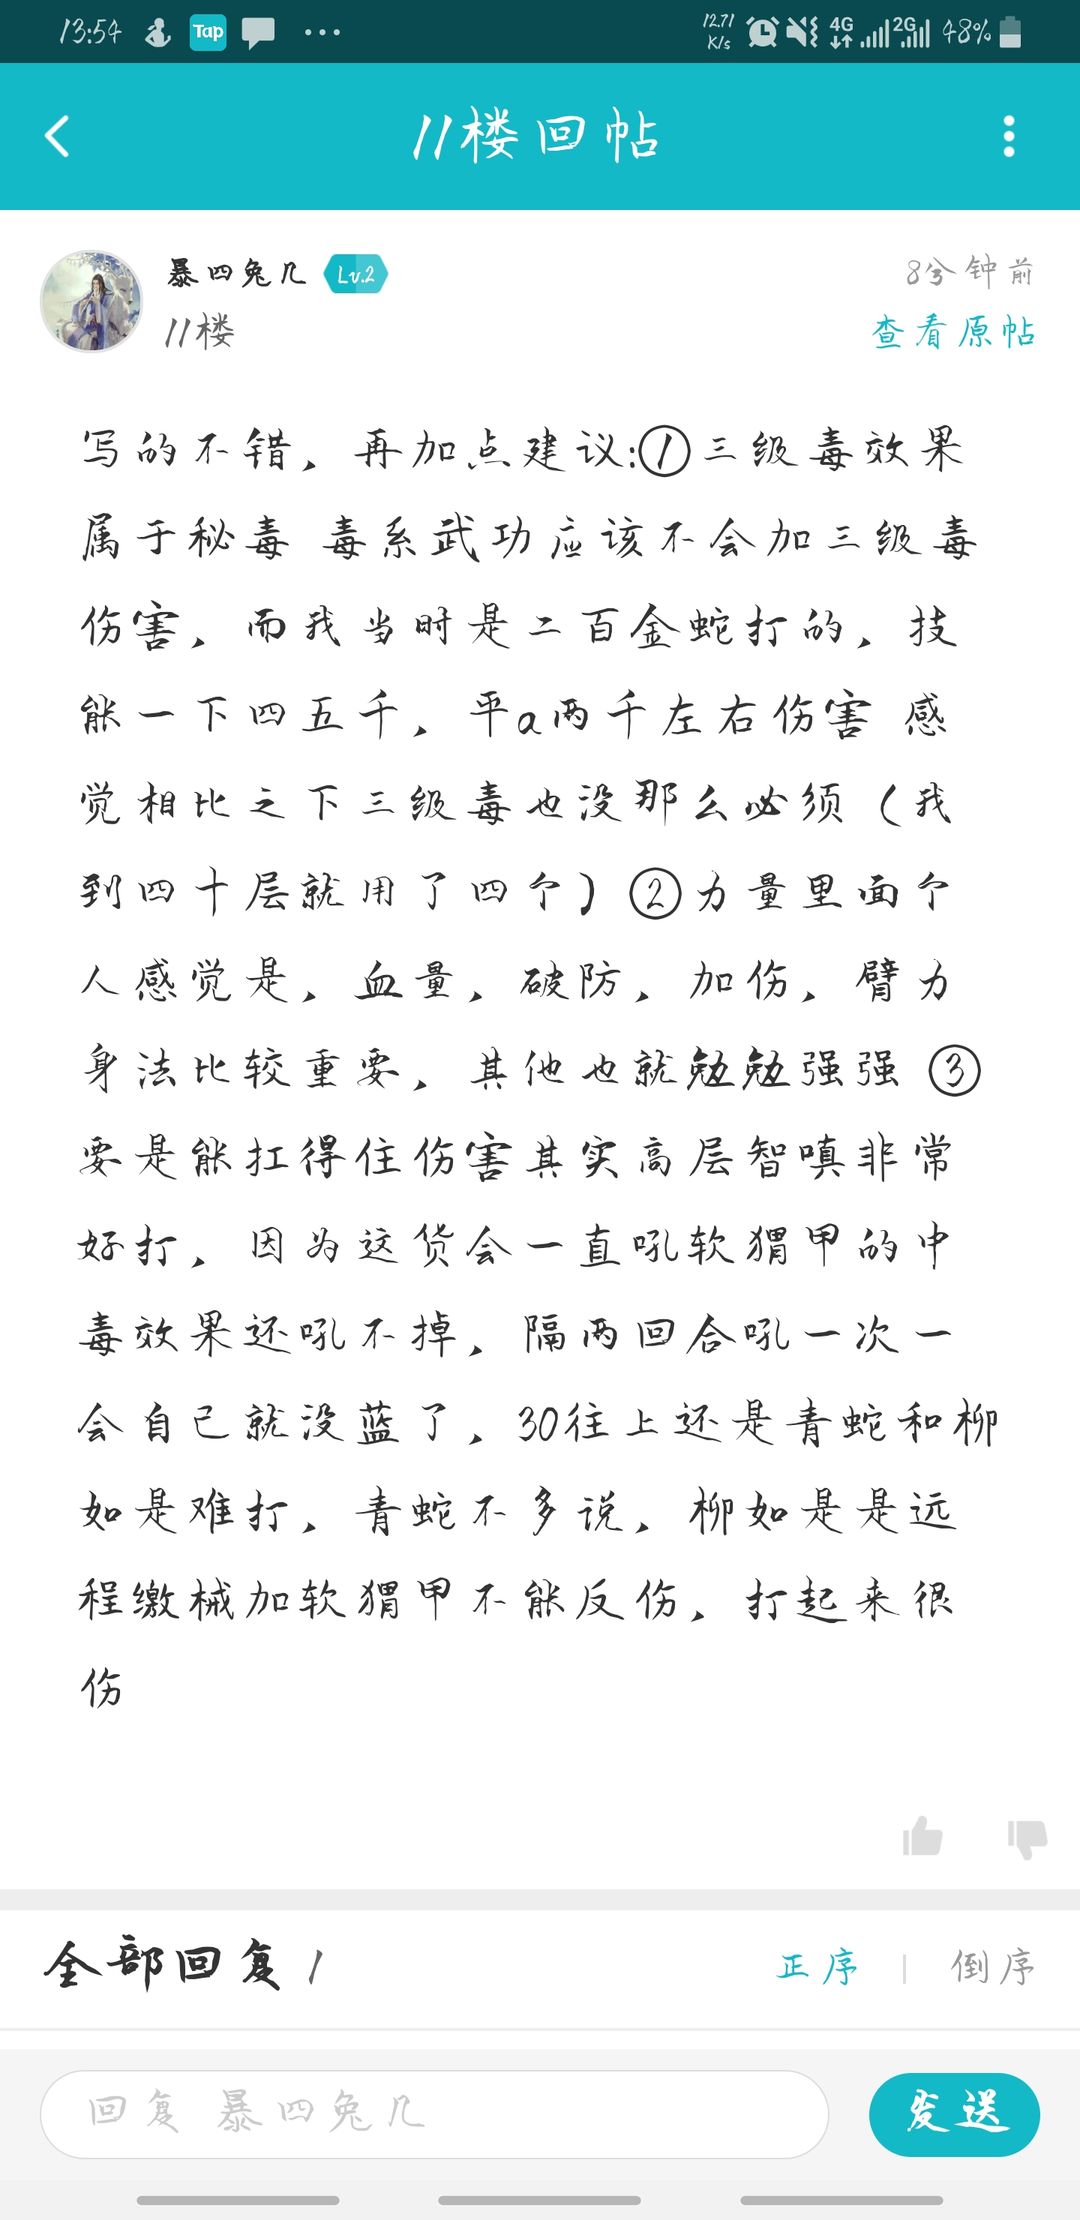 13:54 Tap ... 12.71 K/s 4G 2G 48%
11楼回帖
暴四兔几 Lv.2 8分钟前
11楼 查看原帖
写的不错，再加点建议:①三级毒效果
属于秘毒 毒系武功应该不会加三级毒
伤害，而我当时是二百金蛇打的，技
能一下四五千，平a两千左右伤害 感
觉相比之下三级毒也没那么必须（我
到四十层就用了四个）②力量里面个
人感觉是，血量，破防，加伤，臂力
身法比较重要，其他也就勉勉强强 ③
要是能扛得住伤害其实高层智嗔非常
好打，因为这货会一直吼软猬甲的中
毒效果还吼不掉，隔两回合吼一次一
会自己就没蓝了，30往上还是青蛇和柳
如是难打，青蛇不多说，柳如是是远
程缴械加软猬甲不能反伤，打起来很
伤
全部回复 1 正序 | 倒序
回复 暴四兔几 发送